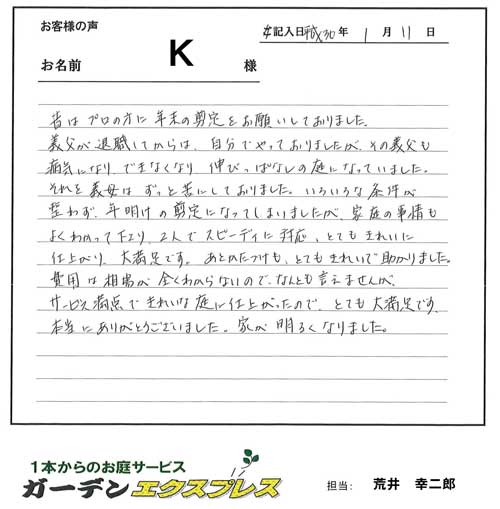 お客様の声
ご記入日 平成30年 1月 11日
お名前 K 様
昔はプロの方に年末の剪定をお願いしておりました。
義父が退職してからは、自分でやっておりましたが、その義父も
病気になり、できなくなり 伸びっぱなしの庭になっていました。
それを義母は ずっと苦にしておりました。いろいろな条件が
整わず、年明けの剪定になってしまいましたが、家庭の事情も
よくわかって下さり、2人でスピーディに対応、とてもきれいに
仕上がり、大満足です。あとかたづけも、とてもきれいで助かりました。
費用は相場が全くわからないので、なんとも言えませんが、
サービス満点できれいな庭に仕上がったので、とても大満足です。
本当にありがとうございました。家が明るくなりました。
1本からのお庭サービス
ガーデンエクスプレス
担当: 荒井 幸二郎